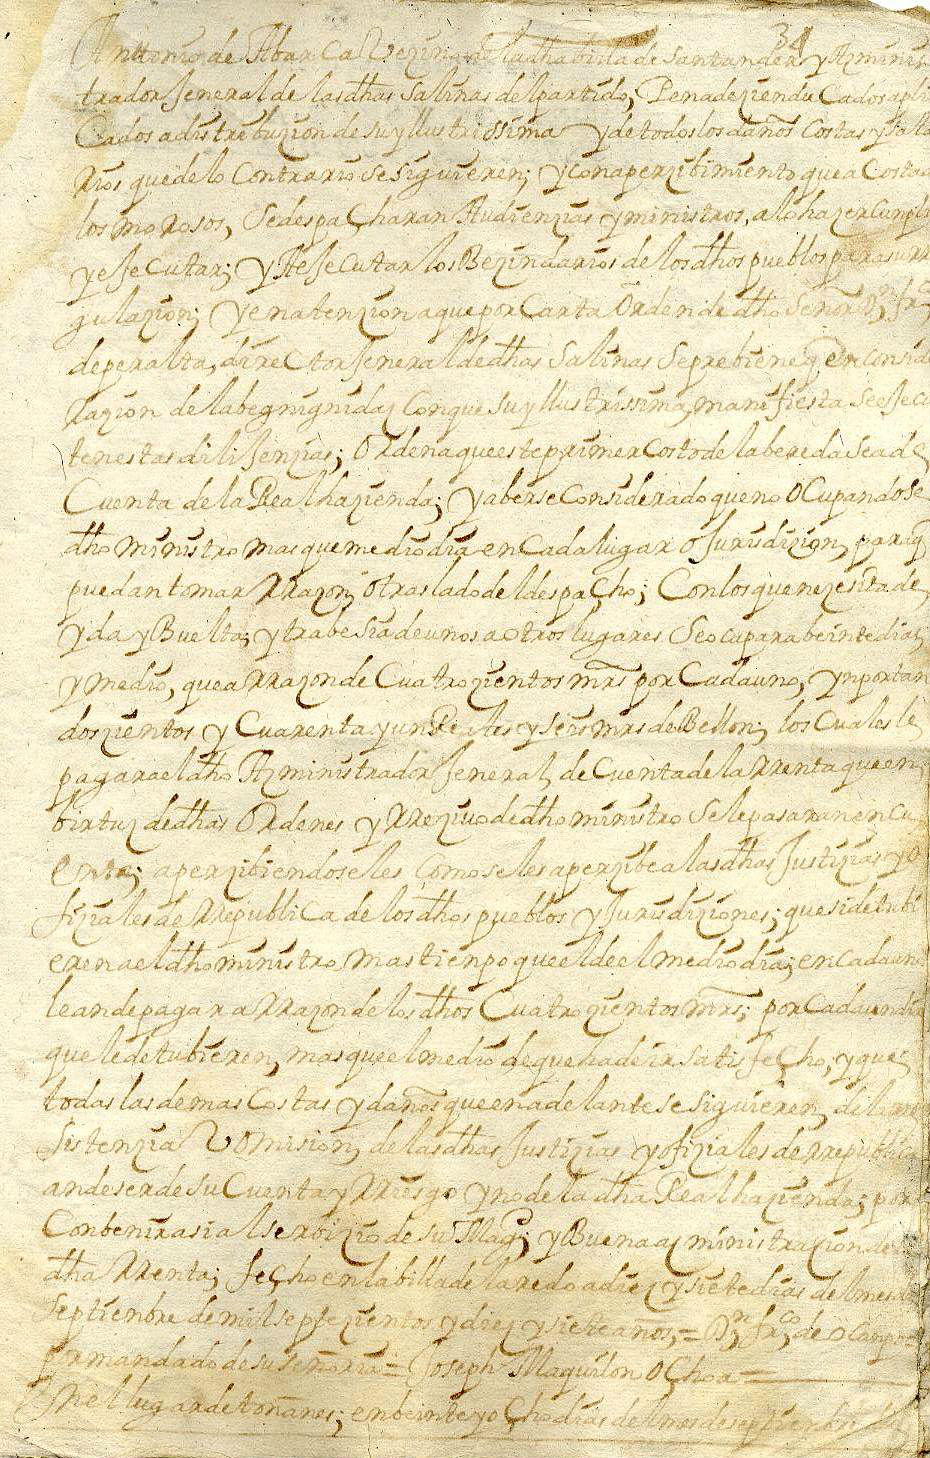 34
Anttonio de Abarca Vezino de la dha billa de Santander y Azminis
trador Jeneral de las dhas Salinas del partido, Pena de zienducados apli
Cados a distrebuzion de su yllustrissima y de todos los daños Costas y sala
rios que de lo Contrario se siguieren; y con aperzibimiento que a Costa de
los morosos, se despaCharan Audienzias y ministros, a lo hazer Cunplir
y eseCutar; y A eseCutar los Bezindarios de los dhos pueblos para su rre
gulazion; y en atenzion a que por Carta Orden de dho Señor Dn frco
de peralta, direCtor Jeneral de dhas Salinas se prebiene q en conside
Razion de la begnignidaz Con que su yllustrissima, manifiesta se eseCu
ten estas dilisenzias; Ordena que este primer Costo de la bereda sea de
Cuenta de la Real hazienda; y aberse Considerado que no OCupandose
dho ministro mas que medio dia en Cada lugar o Jurisdizion, para q
puedan tomar Rrazon, o traslado del despaCho; Con los que nezesita de
yda y Buelta; y trabesia de unos a otros lugares Se ocupara beinte dias
y medio, que a rrazon de Cuatrozientos mrs por Cada uno, ynportan
doszientos y Cuarenta y un Reales y seis mrs de Bellon; los Cuales le
pagara el dho Azministrador Jeneral, de Cuenta de la rrenta que en
birtuz de dhas Ordenes y rrezivo de dho ministro Se le pasaran en Cu
enta; aperzibiendoseles, Como se les aperzibe a las dhas Justizias y o
fiziales de rrepubliCa de los dhos pueblos y Jurisdiziones; que si detubi
eren a el dho ministro, mas tienpo que el de el medio dia; en Cada uno
le an de pagar a rrazon de los dhos Cuatrozientos mrs; por Cada un dia
que le detubieren, mas que el medio de que ha de ir satisfeCho, y que
todas las demas Costas y daños que en adelante se siguieren, de la rre
sistenzia U Omision, de las dhas Justizias y ofiziales de rrepublica
an de ser de su Cuenta y rriesgo y no de la dha Real hazienda; por
Conbenir asi al serbizio de su Magd; y Buena azministrazion de
dha rrenta; feCho en la billa de laredo a diez y siete dias del mes de
septienbre de mil septezientos y diez y siete años, = Dn frco, de OCanpo =
por mandado de su señoria = Joseph Maquilon OChoa =
En el lugar de toñanes; en beinte y oCho dias del mes de septienbre